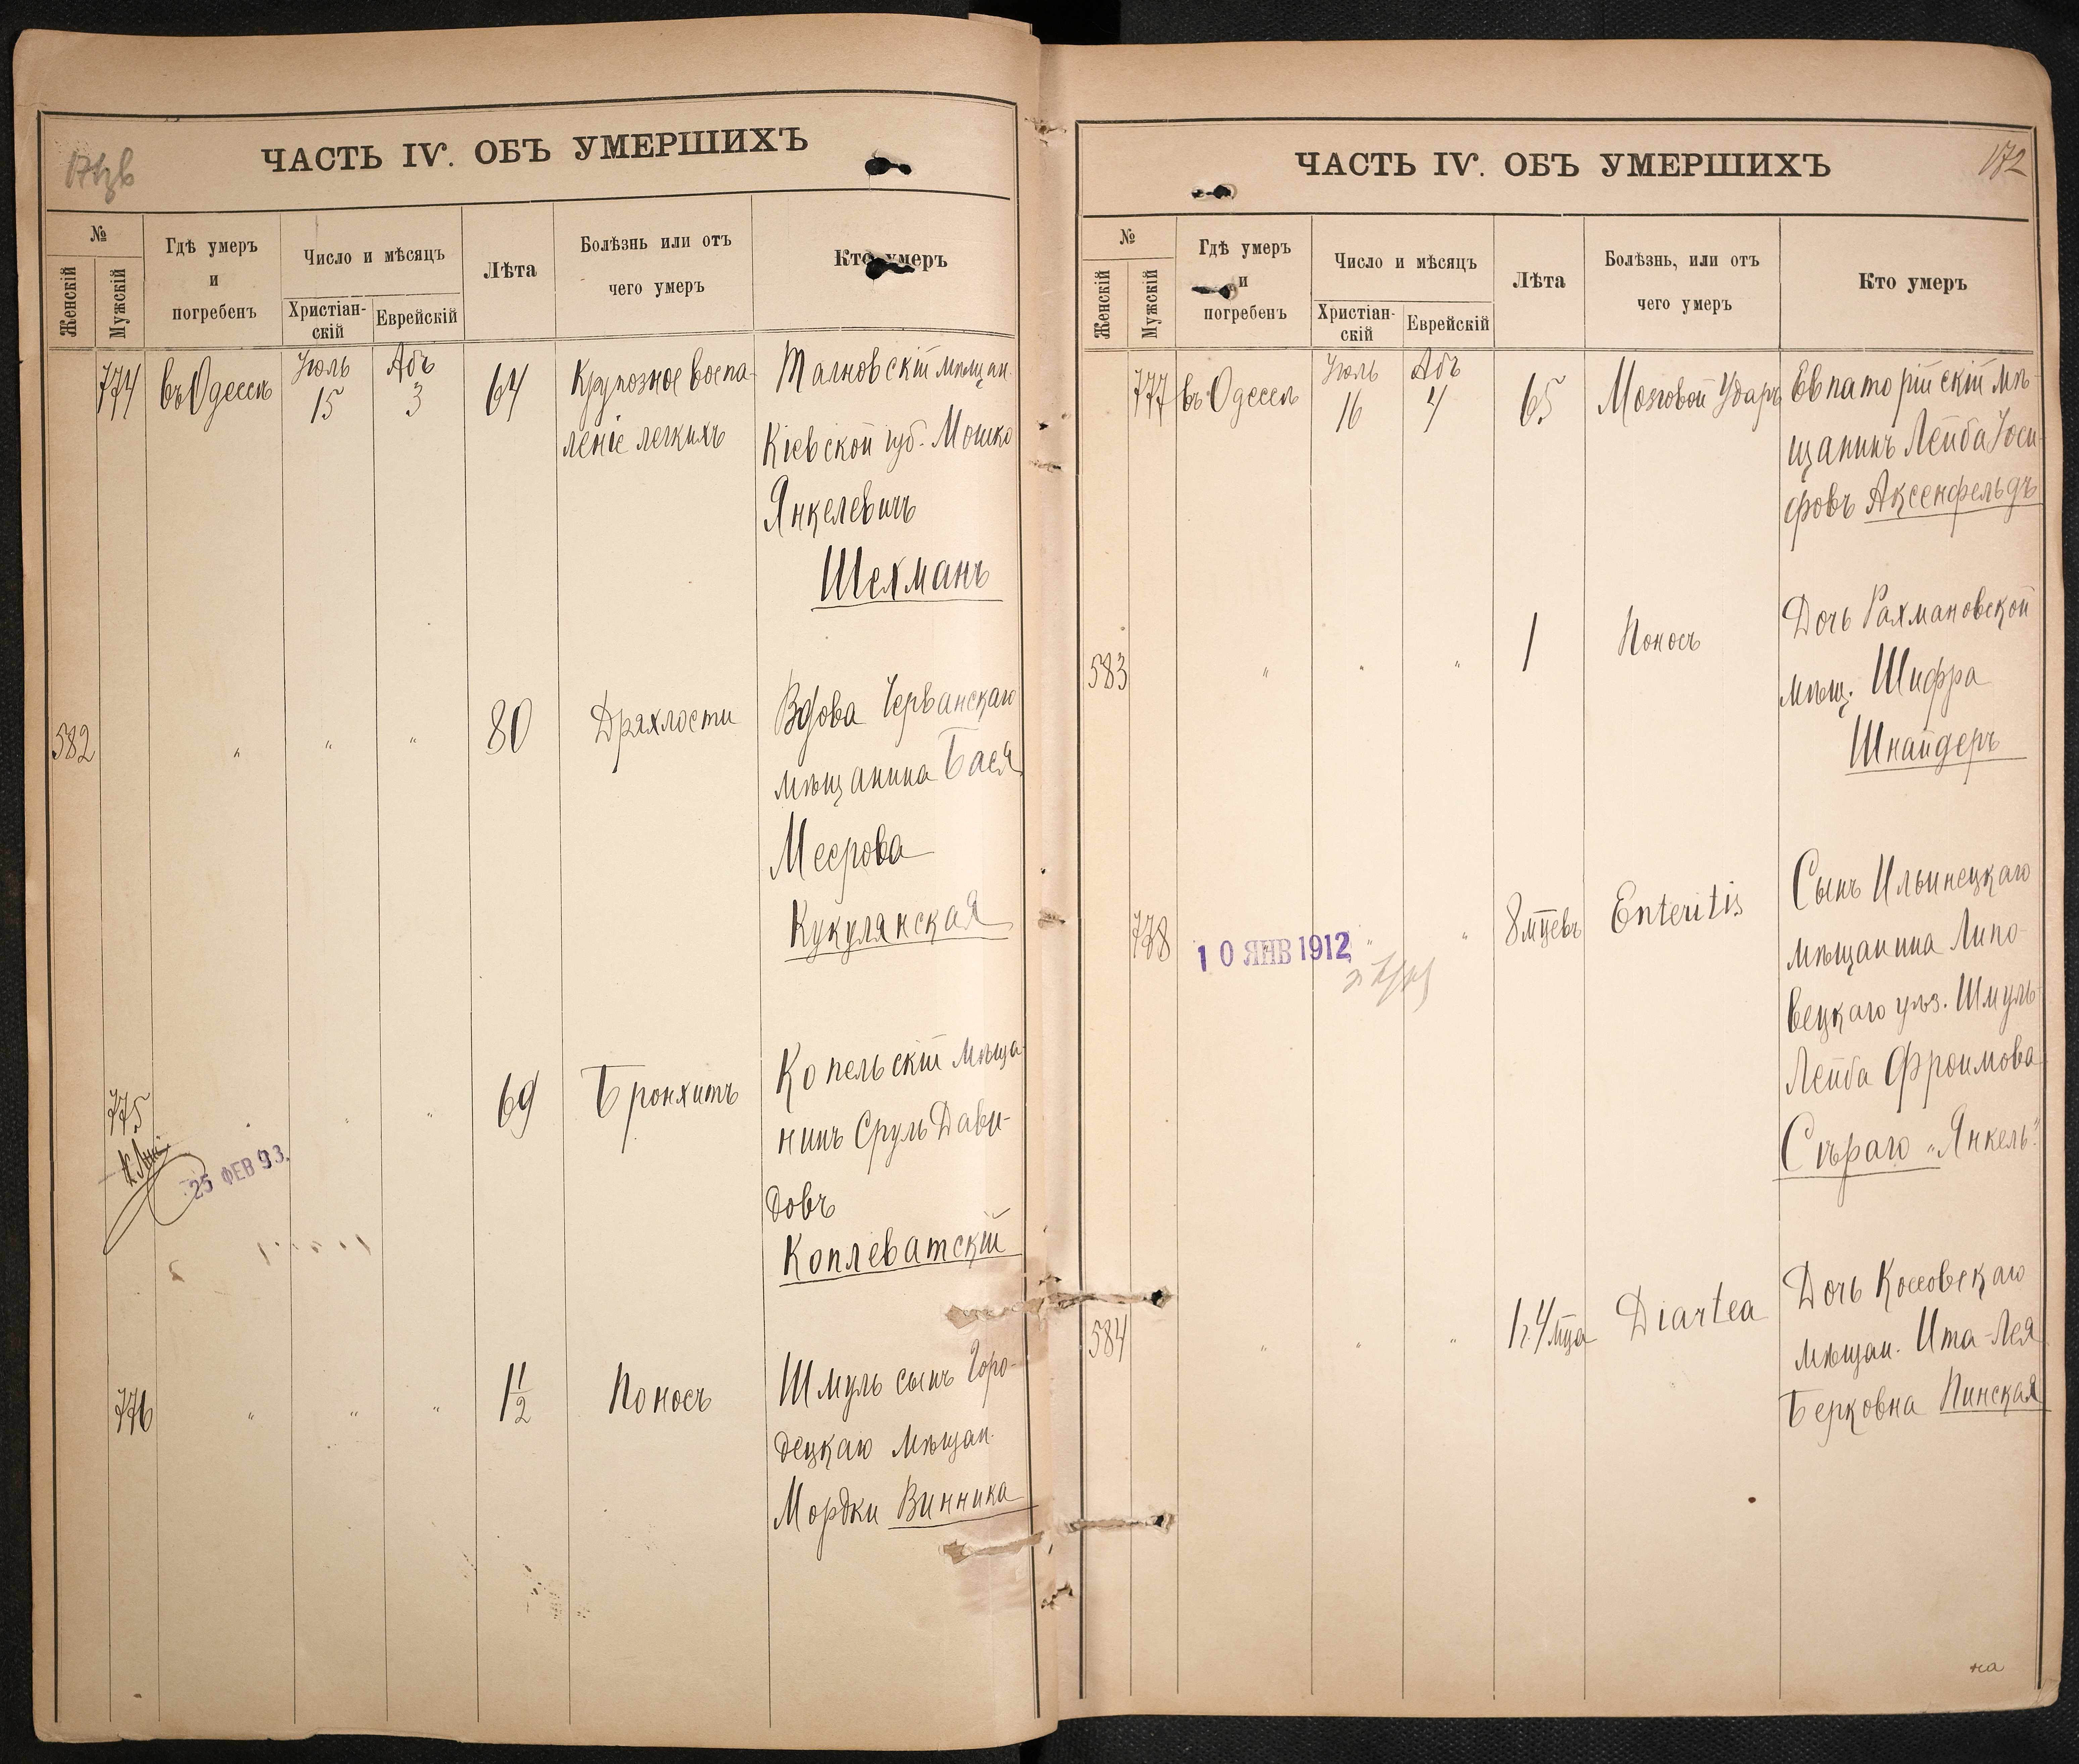 ЧАСТЬ IV. ОБЪ УМЕРШИХЪ
№
Женскій
Мужскій
Гдѣ умеръ
и
погребенъ
Число и мѣсяцъ
Христіан-
скій
Еврейскій
Лѣта
Болѣзнь или отъ
чего умеръ
Кто умеръ
774 въ Одессѣ Іюль 15 Абъ 3 64 Крупозное воспа- Талновскій мѣщан.
леніе легкихъ Кіевской губ. Мошко
Янкелевичъ
Шехманъ
582 " " " 80 Дряхлости Вдова Червонскаго
мѣщанина Бася
Меерова
Кукулянская
775 " " " 69 Бронхитъ Копельскій мѣща-
нинъ Сруль Дави-
довъ
Коплеватскій
25 ФЕВ 93.
776 " " " 1 1/2 Поносъ Шмуль сынъ Горо-
децкаго мѣщан.
Мордки Винника
ЧАСТЬ IV. ОБЪ УМЕРШИХЪ
172
№
Женскій
Мужскій
Гдѣ умеръ
и
погребенъ
Число и мѣсяцъ
Христіан-
скій
Еврейскій
Лѣта
Болѣзнь, или отъ
чего умеръ
Кто умеръ
777 въ Одессѣ Іюль 16 Абъ 4 65 Мозговой Ударъ Евпаторійскій мѣ-
щанинъ Лейба Іоси-
фовъ Аксенфельдъ
583 " " " 1 Поносъ Дочь Рахмановской
мѣщ. Шифра
Шнайдеръ
778 " " 8 мцевъ Enteritis Сынъ Ильинецкаго
мѣщанина Липо-
вецкаго уѣз. Шмуль
Лейба Фроимова
Сѣраго „Янкель"
10 ЯНВ 1912
584 " " " 1 г. 4 мца Diartea Дочь Коссовскаго
мѣщан. Ита-Лея
Берковна Пинская
на